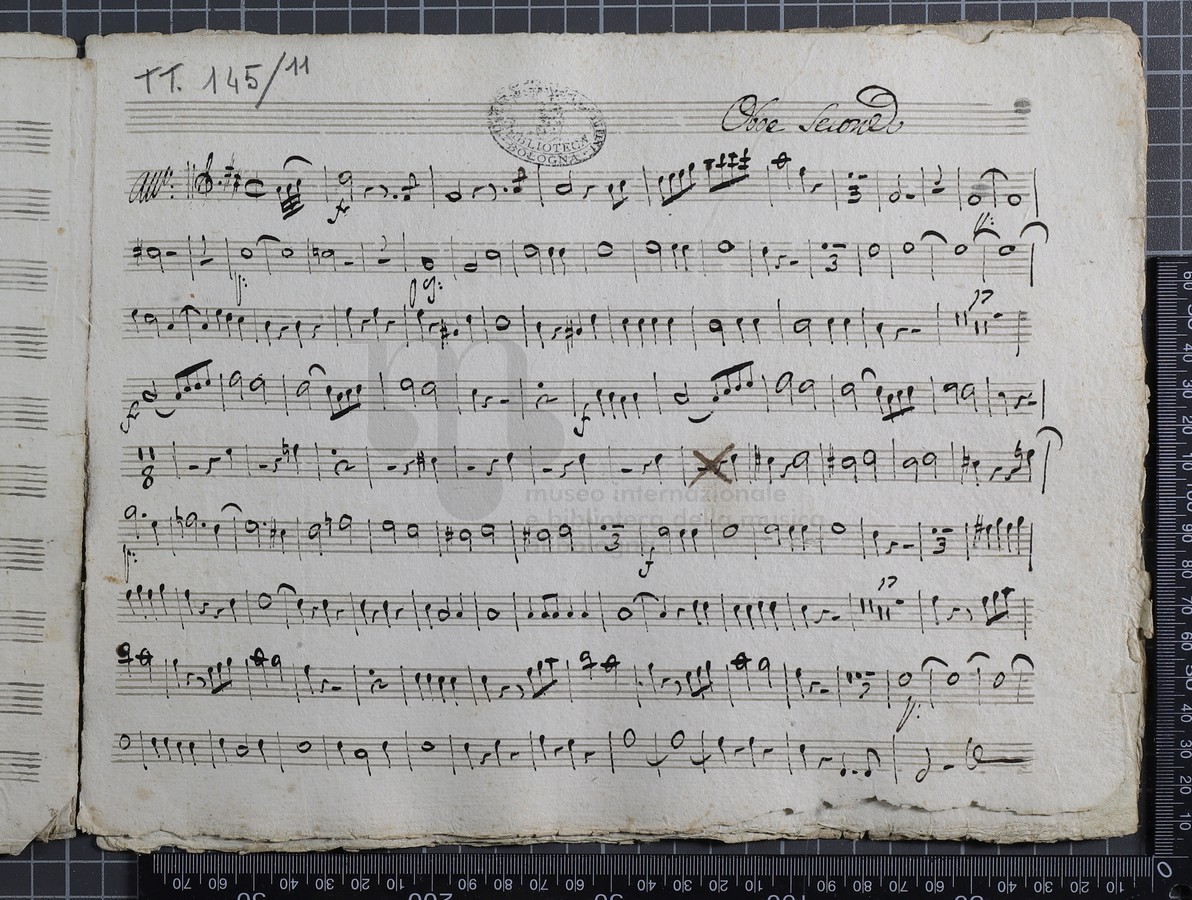 TT. 145/11
BIBLIOTECA
BOLOGNA
Oboe Secondo
All.º
f
3
p:
p:
pg:
3
17
f
f
11
8
p:
3
f
3
17
7
p:
museo internazionale
e biblioteca della musica